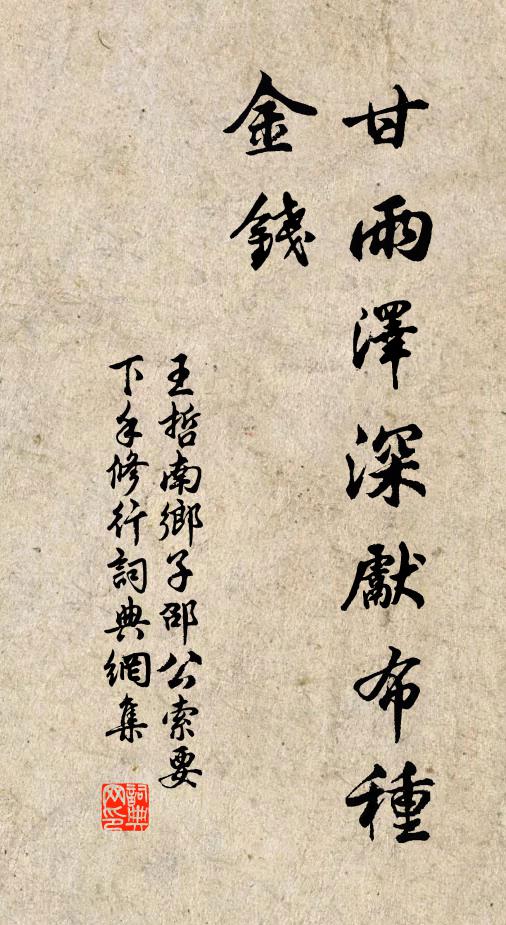 甘雨澤深獻布種
金錢
王哲南鄉子邵公索要
下手修行詞典網集
詞典
网印